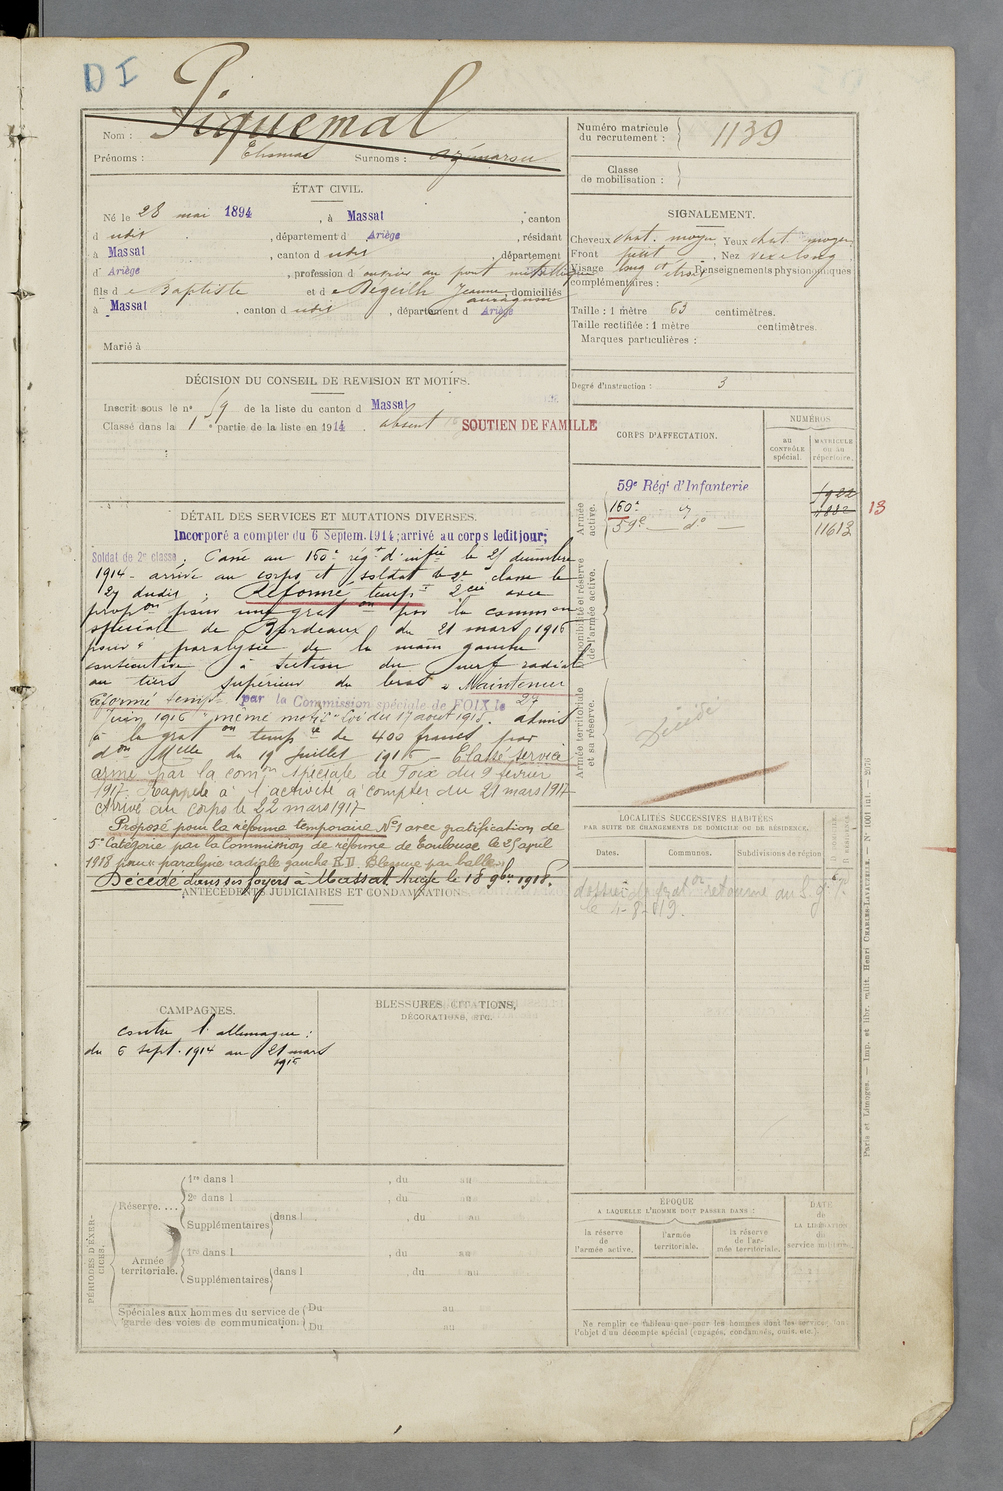 D I
Piquemal
Nom :
Prénoms : Thomas Surnoms :
Numéro matricule
du recrutement : 1139
Classe
de mobilisation :
ÉTAT CIVIL.
Né le 28 mai 1894, à Massat, canton
d udit, département d Ariège, résidant
à Massat, canton d udit, département
d' Ariège, profession d ouvrier au pont métallique
fils de Baptiste et de Degeilh Jeanne, domiciliés
à Massat, canton d udit, département d Ariège
Marié à
SIGNALEMENT.
Cheveux chat. moyen Yeux chat moyen
Front petit, Nez vexe long
Visage long et Renseignements physionomiques
complémentaires :
Taille : 1 mètre 63 centimètres.
Taille rectifiée : 1 mètre centimètres.
Marques particulières :
Degré d'instruction : 3
DÉCISION DU CONSEIL DE REVISION ET MOTIFS.
Inscrit sous le n° 59 de la liste du canton d Massat
Classé dans la 1 e partie de la liste en 1914. absent SOUTIEN DE FAMILLE
CORPS D'AFFECTATION.
NUMÉROS
au
CONTRÔLE
spécial.
MATRICULE
ou au
répertoire.
Armée
active.
59e Régt d'Infanterie
160e
59e — do — 11613
13
Disponibilité et réserve
de l'armée active.
Armée territoriale
et sa réserve.
Décédé
DÉTAIL DES SERVICES ET MUTATIONS DIVERSES.
Incorporé a compter du 6 Septem. 1914; arrivé au corps ledit jour;
Soldat de 2e classe. Passé au 160e régt d'infie le 25 décembre
1914 - arrivé au corps et soldat de 2e classe le
27 dudit; Réformé tempre 2 avec
propon pour une graton par la common
spéciale de Bordeaux du 21 mars 1916
pour "paralysie de la main gauche
consécutive à section du nerf radial
au tiers supérieur du bras" Maintenu
réformé tempre 1 par la Commission spéciale de FOIX le 27
Juin 1916 "même motif" Loi du 17 août 1915. admis
à la graton tempre de 400 francs par
don Melle du 19 Juillet 1916 - Classé service
armé par la comon spéciale de Foix du 9 février
1917. Rappelé à l'activité à compter du 21 mars 1917
Arrivé au corps le 22 mars 1917
Proposé pour la réforme temporaire No1 avec gratification de
5e Catégorie par la Commission de réforme de Toulouse le 25 avril
1918 pour "paralysie radiale gauche R.D. Blessure par balle"
Décédé dans ses foyers à Massat Ariège le 18 9bre 1918.
ANTÉCÉDENTS JUDICIAIRES ET CONDAMNATIONS
LOCALITÉS SUCCESSIVES HABITÉES
PAR SUITE DE CHANGEMENTS DE DOMICILE OU DE RÉSIDENCE.
Dates.
Communes.
Subdivisions de région
D. DOMICILE.
R. RÉSIDENCE.
dossier de graton retourné au S. G.
le 4-8-819.
CAMPAGNES.
contre l'allemagne :
du 6 sept. 1914 au 21 mars
1916
BLESSURES, CITATIONS,
DÉCORATIONS, ETC.
PÉRIODES D'EXERCICES.
Réserve....
1re dans l , du au
2e dans l , du au
Supplémentaires dans l , du au
Armée
territoriale.
1re dans l , du au
Supplémentaires dans l , du au
Spéciales aux hommes du service de
garde des voies de communication.
Du au
Du au
ÉPOQUE
A LAQUELLE L'HOMME DOIT PASSER DANS :
la réserve
de
l'armée active.
l'armée
territoriale.
la réserve
de l'ar-
mée territoriale.
DATE
de
LA LIBÉRATION
du
service militaire.
Ne remplir ce tableau que pour les hommes dont les services font
l'objet d'un décompte spécial (engagés, condamnés, omis, etc.).
Paris et Limoges. — Imp. et libr. milit. Henri CHARLES-LAVAUZELLE.